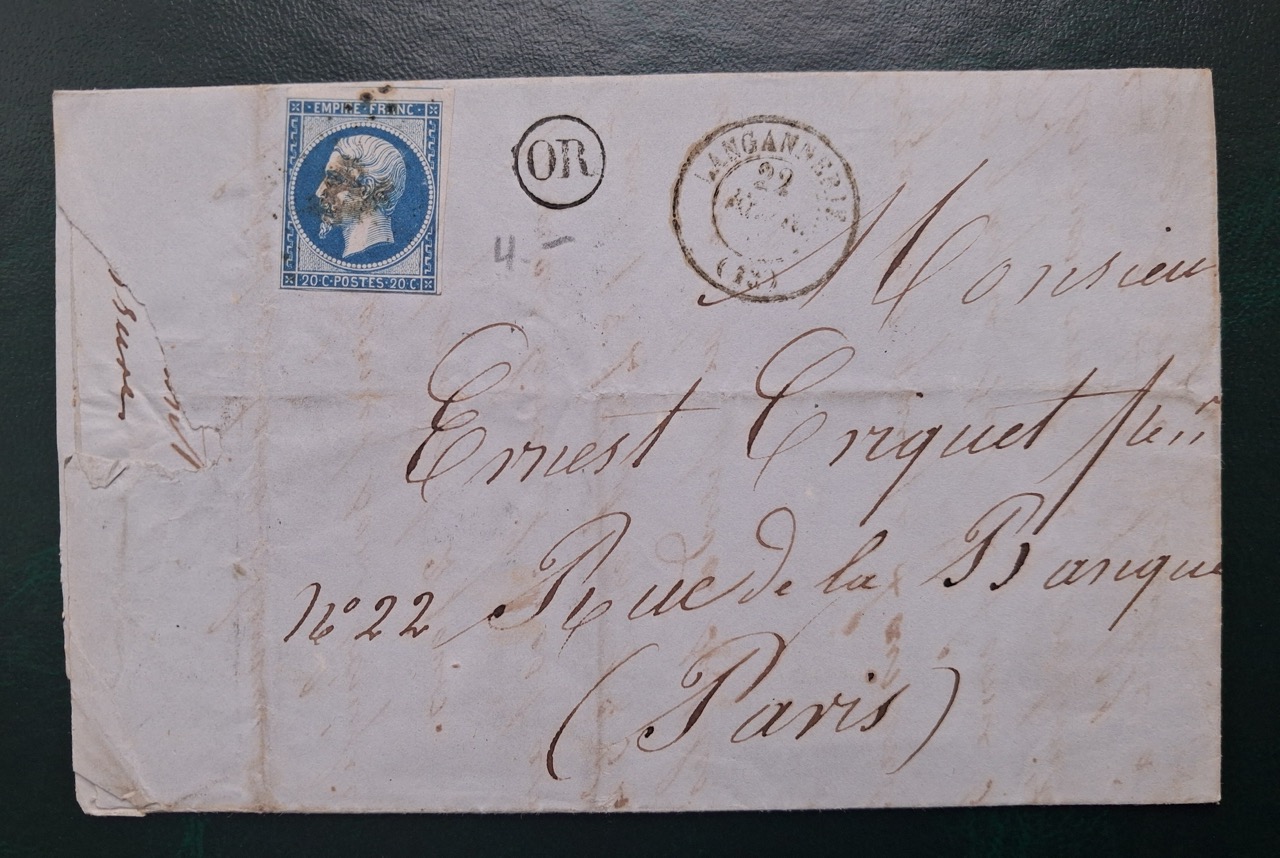 EMPIRE FRANC
20 C · POSTES · 20 C
OR
LANGANNERIE
22
(13)
4 -
Monsieur
Ernest Criquet
N° 22 Rue de la Banque
(Paris)